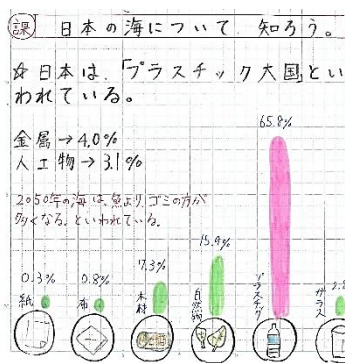 課 日本の海について 知ろう。
☆日本は、「プラスチック大国」とい
われている。
65.8%
金属→4.0%
人工物→3.1%
2050年の海は、魚より、ゴミの方が
多くなる。といわれている。
0.3% 0.8% 7.3% 15.9%
紙 布 木材 自然物 プラスチック ガラス